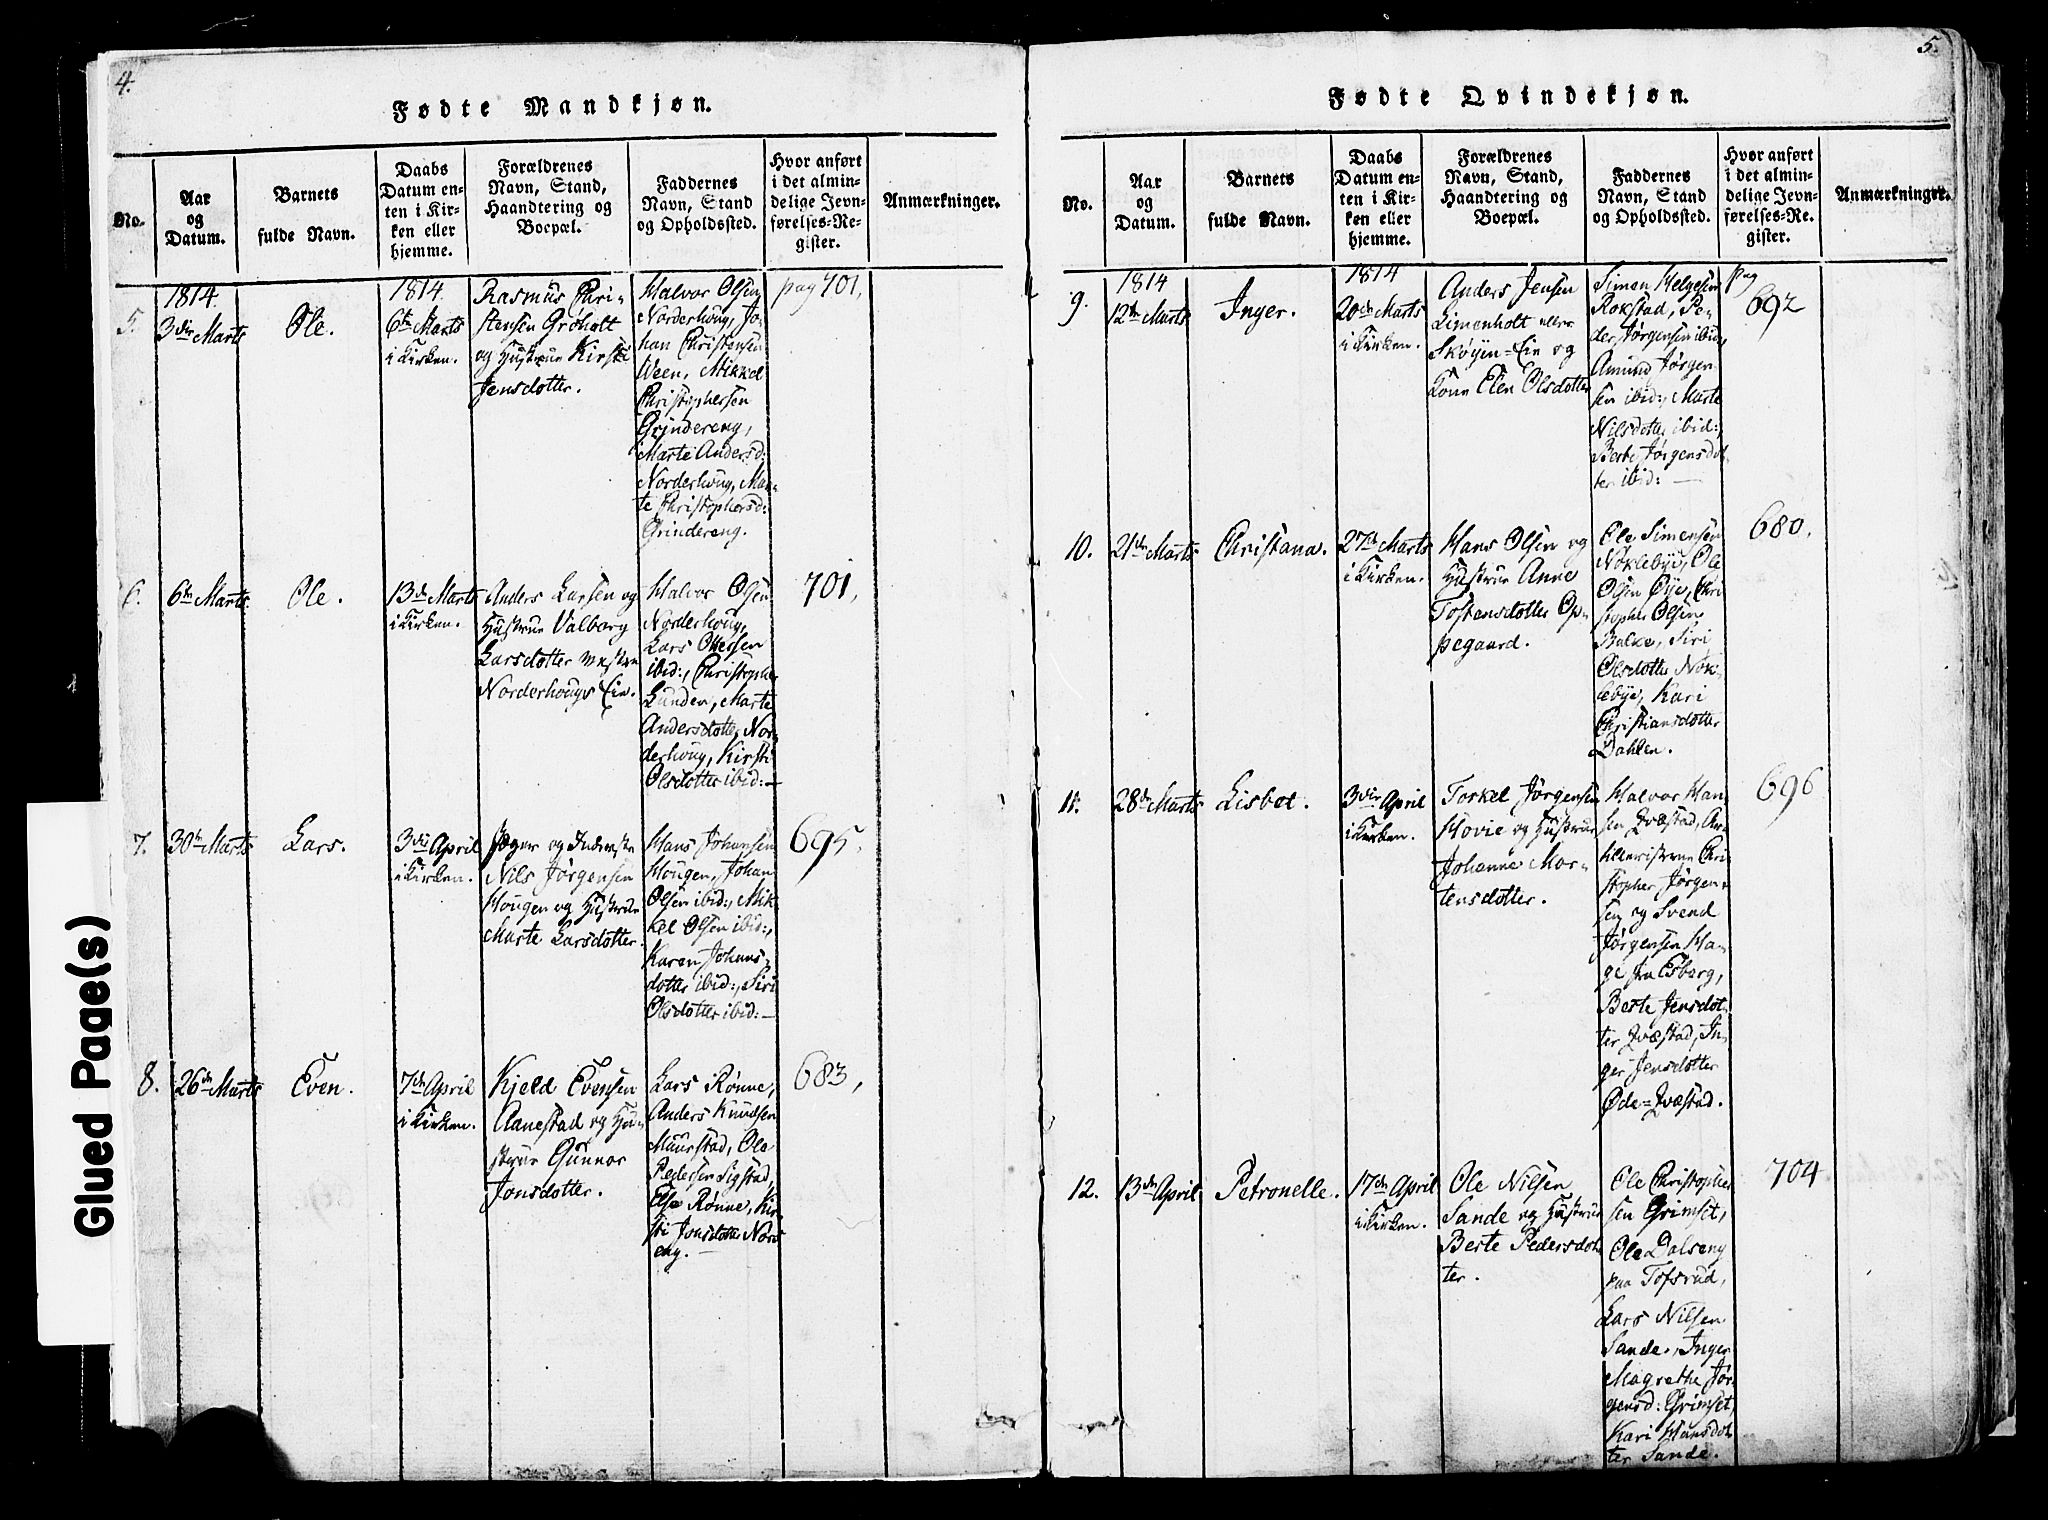 4.
Fødte Mandkjøn.
No.
Aar
og
Datum.
Barnets
fulde Navn.
Daabs
Datum en-
ten i Kir-
ken eller
hjemme.
Forældrenes
Navn, Stand,
Haandtering og
Boepæl.
Faddernes
Navn, Stand
og Opholdssted.
Hvor anført
i det almin-
delige Jevn-
førelses-Re-
gister.
Anmærkninger.
5.
1814.
3die Marts
Ole.
1814.
6te Marts
i Kirken.
Rasmus Chri-
stensen Grøholt
og Hustrue Kirsti
Jensdotter.
Halvor Olsen
Norderhoug, Jo-
han Christensen
Ween, Mikkel
Christophersen
Grindereng,
Marte Andersd:
Norderhoug, Mar-
te Christophersd:
Grindereng.
pag 701,
6.
6te Marts
Ole.
13de Marts
i Kirken.
Anders Larsen og
Hustrue Valborg
Larsdotter westre
Norderhougs Eie.
Halvor Olsen
Norderhoug,
Lars Ottersen
ibid:, Christopher
Lunden, Marte
Andersdotter Nor-
derhoug, Kirsti
Olsdotter ibid:—
701,
7.
30te Marts
Lars.
3die April
i Kirken.
Jæger og Inderste
Nils Jørgensen
Hougen og Hustrue
Marte Larsdotter.
Hans Johansen
Hougen, Johan
Olsen ibid:, Mik-
kel Olsen ibid:,
Karen Johans-
dotter ibid:, Siri
Olsdotter ibid:—
695,
8.
26de Marts
Even.
7de April
i Kirken.
Kjeld Evensen
Aanestad og Hu-
strue Gunnor
Jonsdotter.
Lars Rønne,
Anders Knudsen
Muurstad, Ole
Pedersen Sigstad,
Else Rønne, Kir-
sti Jonsdotter Nord-
eng.—
683,
5.
Fødte Qvindekjøn.
No.
Aar
og
Datum.
Barnets
fulde Navn.
Daabs
Datum en-
ten i Kir-
ken eller
hjemme.
Forældrenes
Navn, Stand,
Haandtering og
Boepæl.
Faddernes
Navn, Stand
og Opholdssted.
Hvor anført
i det almin-
delige Jevn-
førelses-Re-
gister.
Anmærkninger.
9.
1814
12te Marts
Inger.
1814
20de Marts
i Kirken.
Anders Jensen
Limenholt eller
Skøyen=Eie og
Kone Elen Olsdotter
Simon Helgesen
Rokstad, Pe-
der Jørgensen ibid,
Amund Jørgen-
sen ibid:, Marte
Nilsdotter ibid:,
Berte Jørgensdot-
ter ibid:—
pag
692
10.
21de Marts
Christana.
27de Marts
i Kirken.
Hans Olsen og
Hustrue Anne
Tostensdotter Op-
pegaard.
Ole Simensen
Nøklebye, Ole
Olsen Øye, Chri-
stopher Olsen
Balke, Siri
Olsdotter Nøk-
lebye, Kari
Christiansdotter
Dahlen.
680,
11.
28de Marts
Lisbet.
3die April
i Kirken.
Torkel Jørgensen
Hovie og Hustrue
Johanne Mor-
tensdotter.
Halvor Han-
sen Qvæstad, Ar-
tilleristerne Chri-
stopher Jørgen-
sen og Svend
Jørgensen Ha-
ge fra Esberg,
Berte Jensdot-
ter Qvæstad, In-
ger Jensdotter
Øde=Qvæstad.
696
12.
13de April
Petronelle.
17de April
i Kirken.
Ole Nilsen
Sande og Hustrue
Berte Pedersdot-
ter.
Ole Christopher-
sen Grimset,
Ole Dalseng
paa Tofsrud,
Lars Nilsen
Sande, Inger
Magrethe Jør-
gensd: Grimset,
Kari Hansdot-
ter Sande.
704
Glued Page(s)